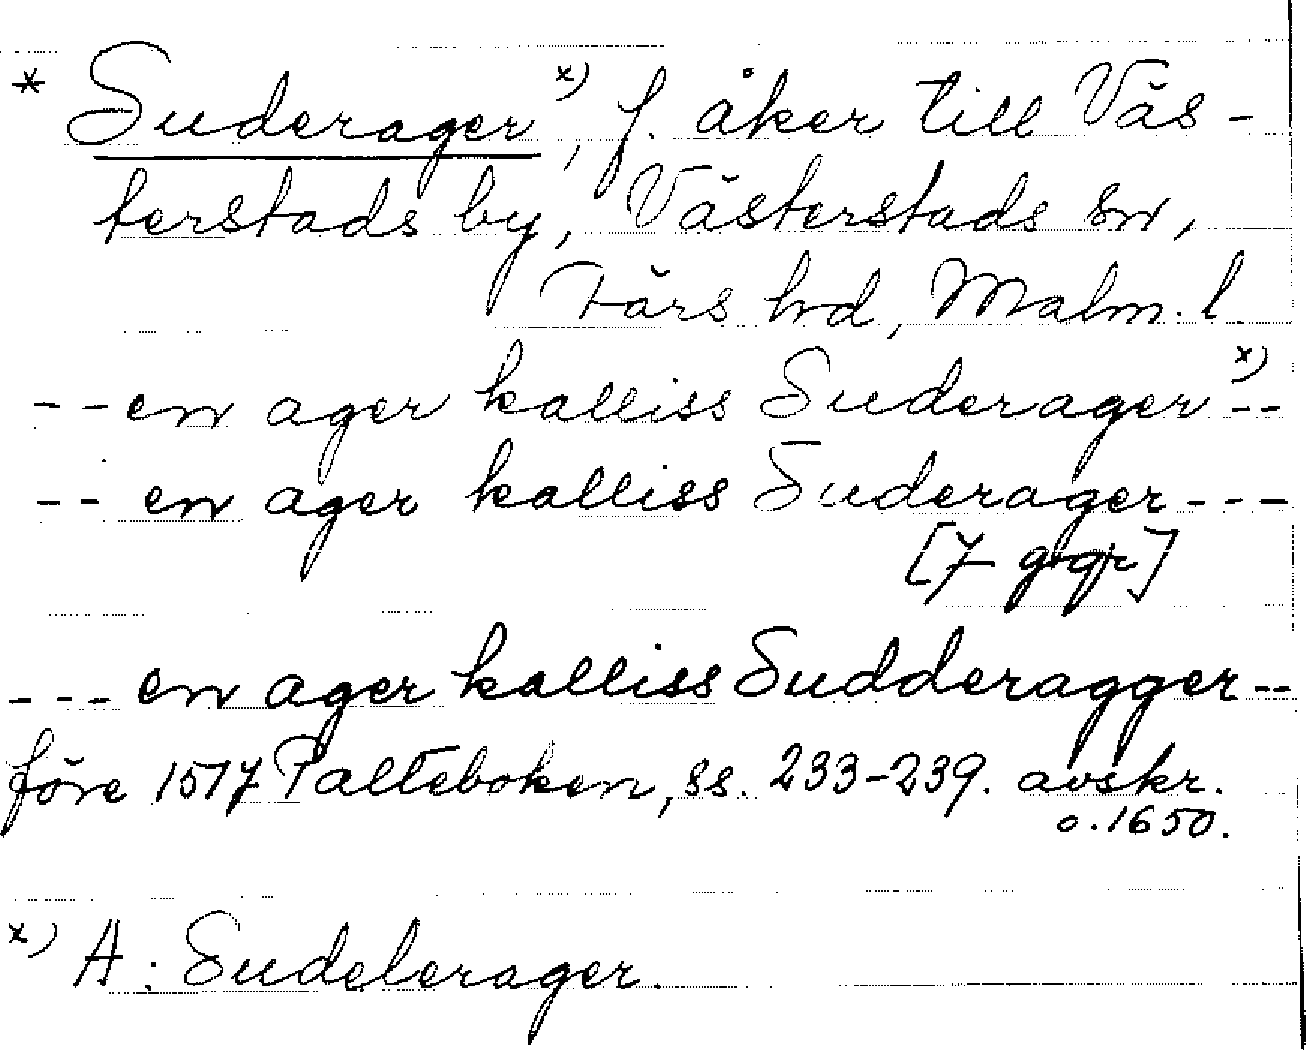 * Suderager x), f. åker till Väs-
terstads by, Västerstads sn,
Färs hd, Malm. l.
-- en ager kalliss Suderager x) --
-- en ager kalliss Suderager ---
[7 ggr]
--- en ager kalliss Sudderagger --
före 1517 Palteboken, ss. 233-239. avskr.
o. 1650.
x) A: Sudelerager.